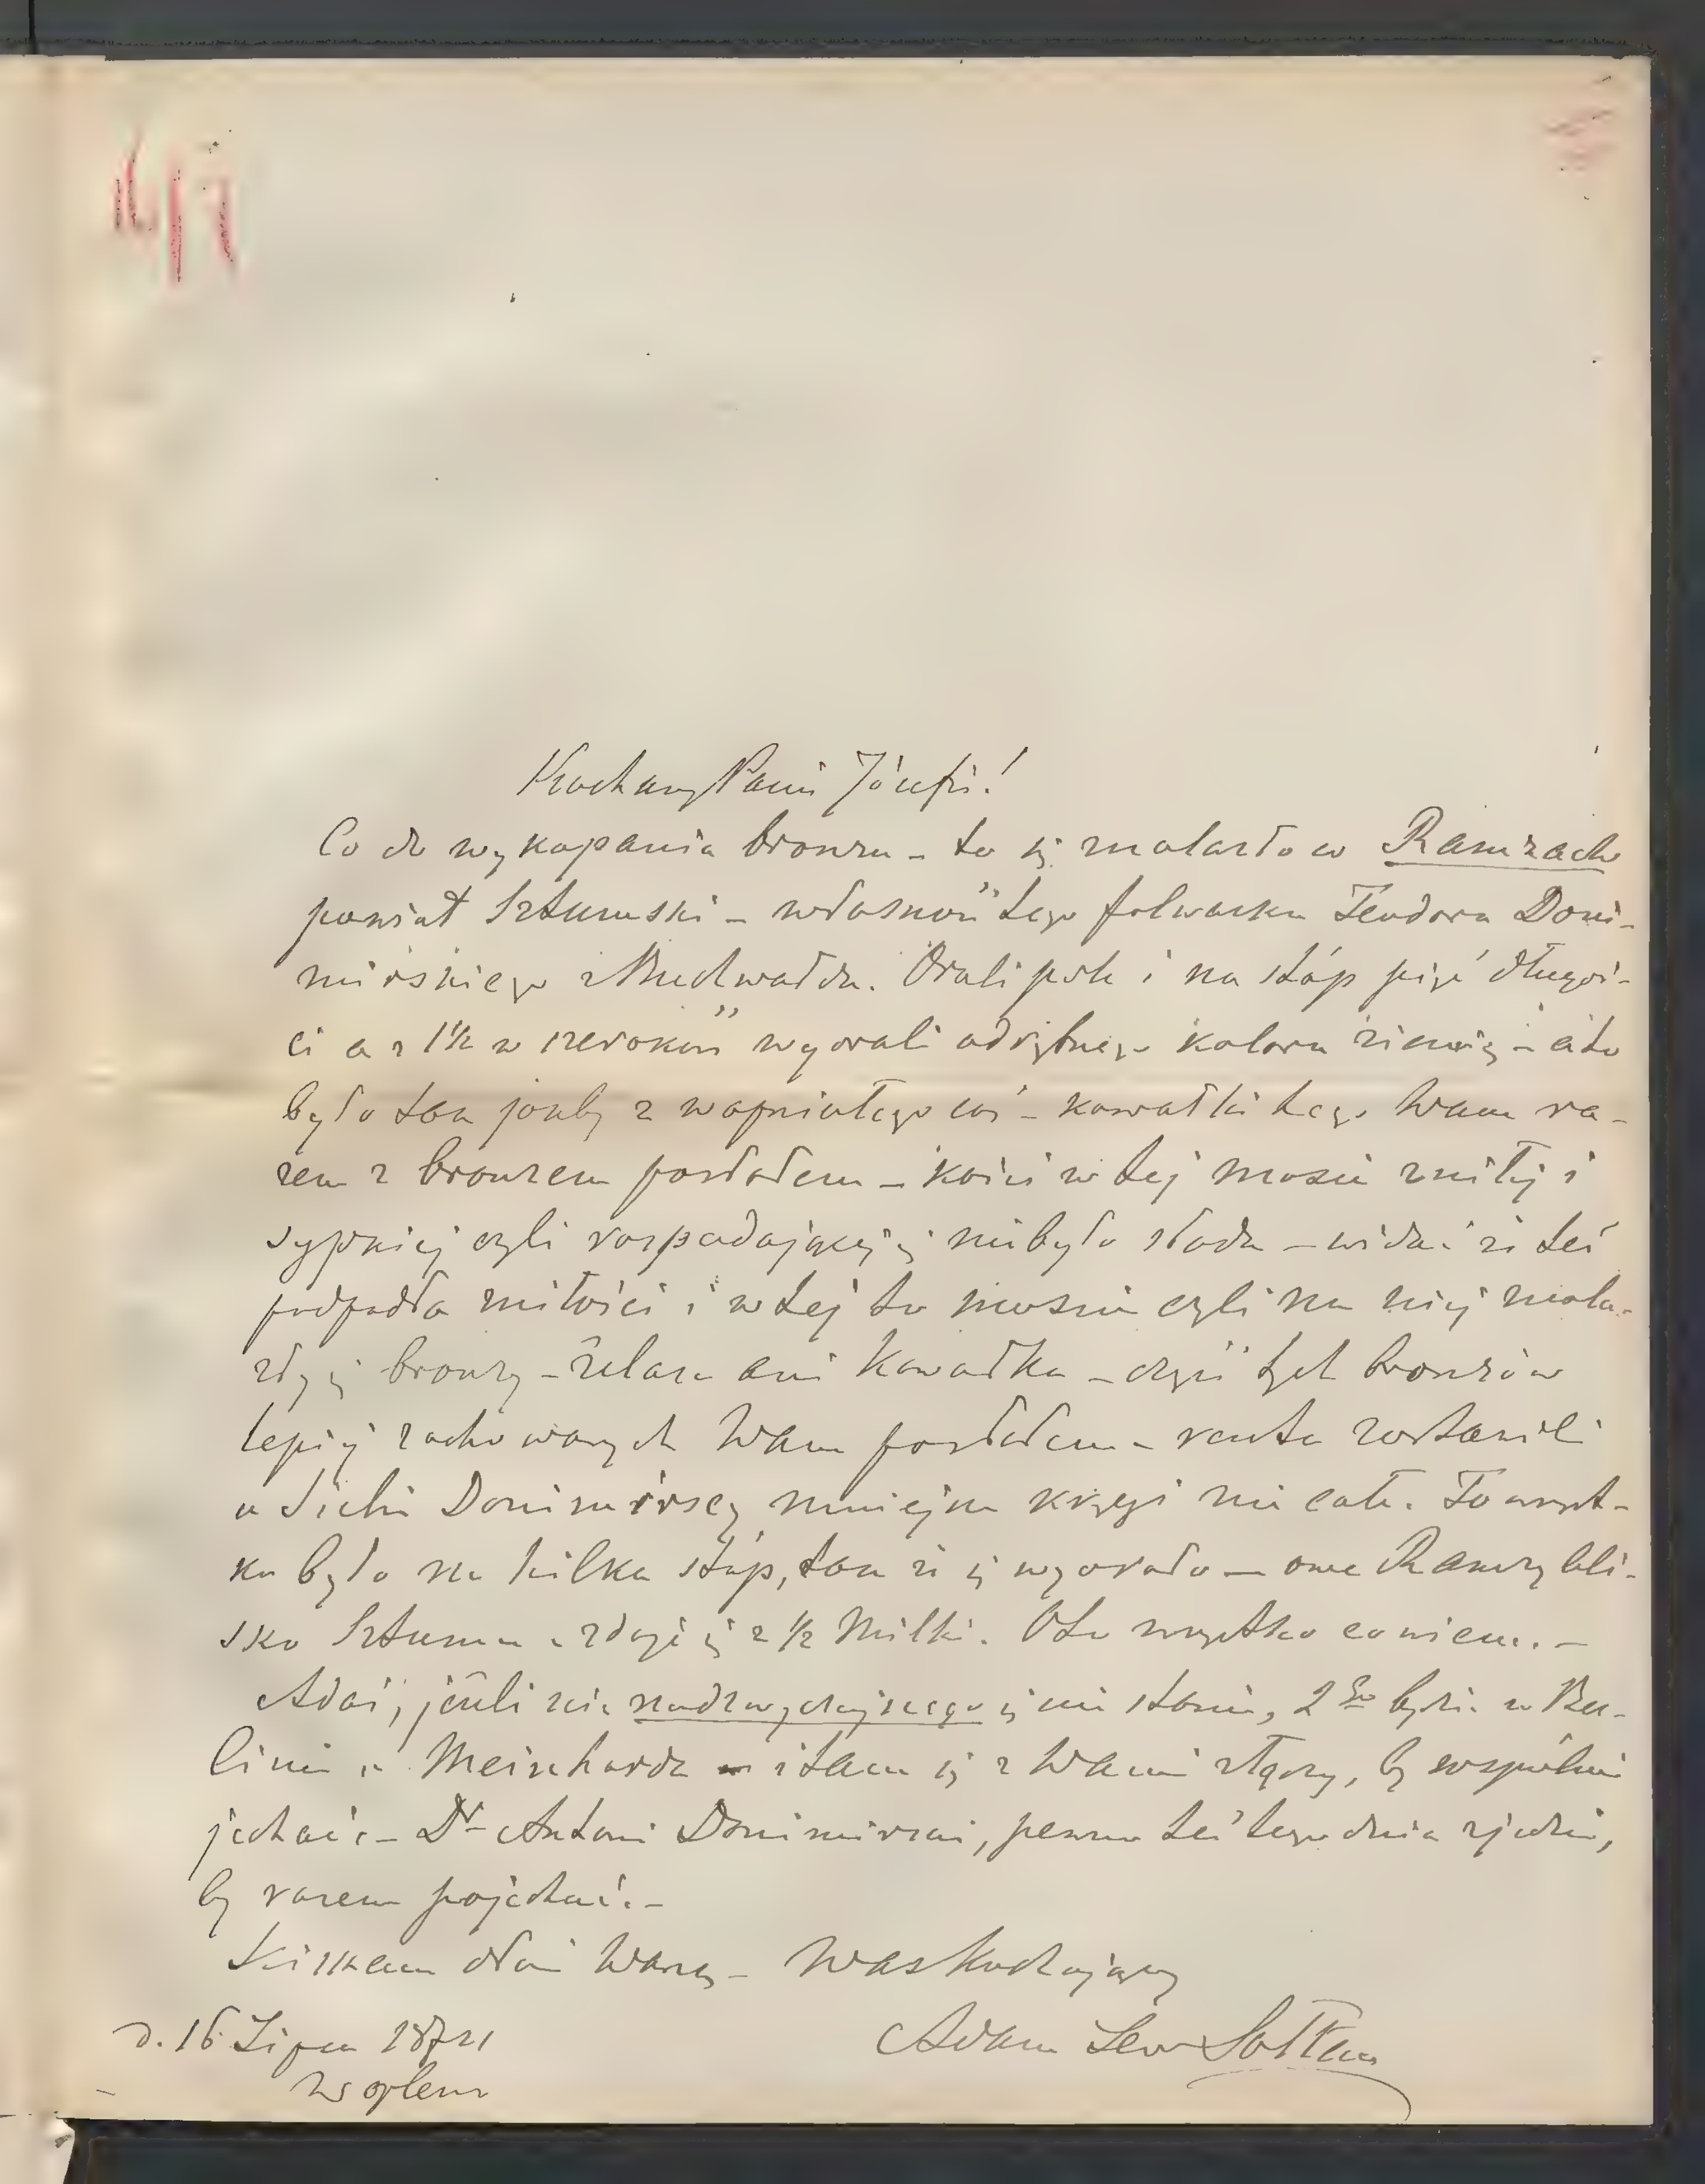 Kochany Panie Józefie!
Co do wykopania bronzu – to się znalazło w Ramzach
powiat Sztumski – własność tego folwarku Teodora Doni-
mirskiego z Buchwałdu. Orali pole i na stóp pięć długoś-
ci a z 1½ w szerokość wyorali odrębnego koloru ziemię – a to
było tak jakby z wapniałego coś – kawałki tego Wam ra-
zem z bronzem posłałem – kości w tej masie zniłej i
sypkiej czyli rozpadającej się nie było śladu – widać że też
podpadła zniłości i w tej to massie czyli na niej znala-
zły się bronzy – żelaza ani kawałka – część tych bronzów
lepiej zachowanych Wam posłałem – resztę zostawili
u siebie Donimirscy mniejsze kręgi nie całe. To wszyst-
ko było na kilka stóp, tak że się wyorało – owe Ramzy bli-
sko Sztumu zdaje się z ½ Milki. Oto wszystko co wiem. –
Adaś, jeśli nic nadzwyczajnego się nie stanie, 2go będzie w Ber-
linie u Meinharda i tam się z Wami złączy, by wspólnie
jechać – Dr Antoni Donimirski, pewno też tego dnia zjedzie,
by razem pojechać. –
Ściskam dłoń Waszą – Was Kochający
Adam Lew Sołtan
d. 16 Lipca 1871